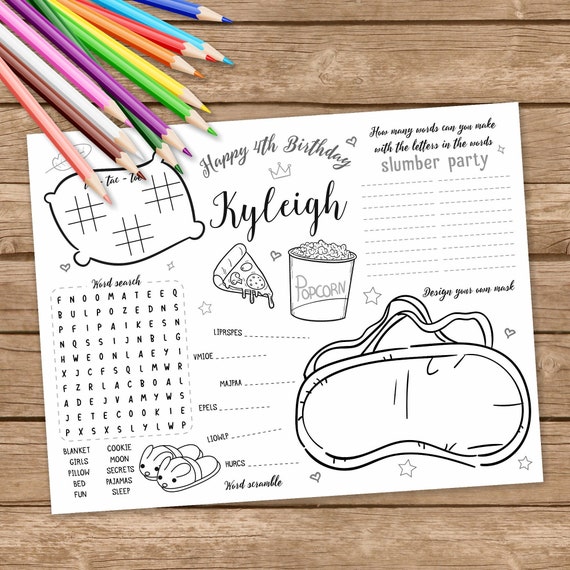 Happy 4th Birthday
Kyleigh
tac -
How many words can you make
with the letters in the words
slumber party
Word search
F N O O M A T E E Q
B U L P O Z E D N S
P F I P A I K E S N
N Q S S I J N B L G
H W E O N L A E Y I
X J C F S Q L M W R
F Z R L A C B O A L
A D E J V A M Y W S
J E T E C O O K I E
P X S X S L Y L W P
BLANKET COOKIE
GIRLS MOON
PILLOW SECRETS
BED PAJAMAS
FUN SLEEP
POPCORN
LIPRSPES
VMIOE
MAJPAA
EPELS
LIOWLP
HURCS
Word scramble
Design your own mask